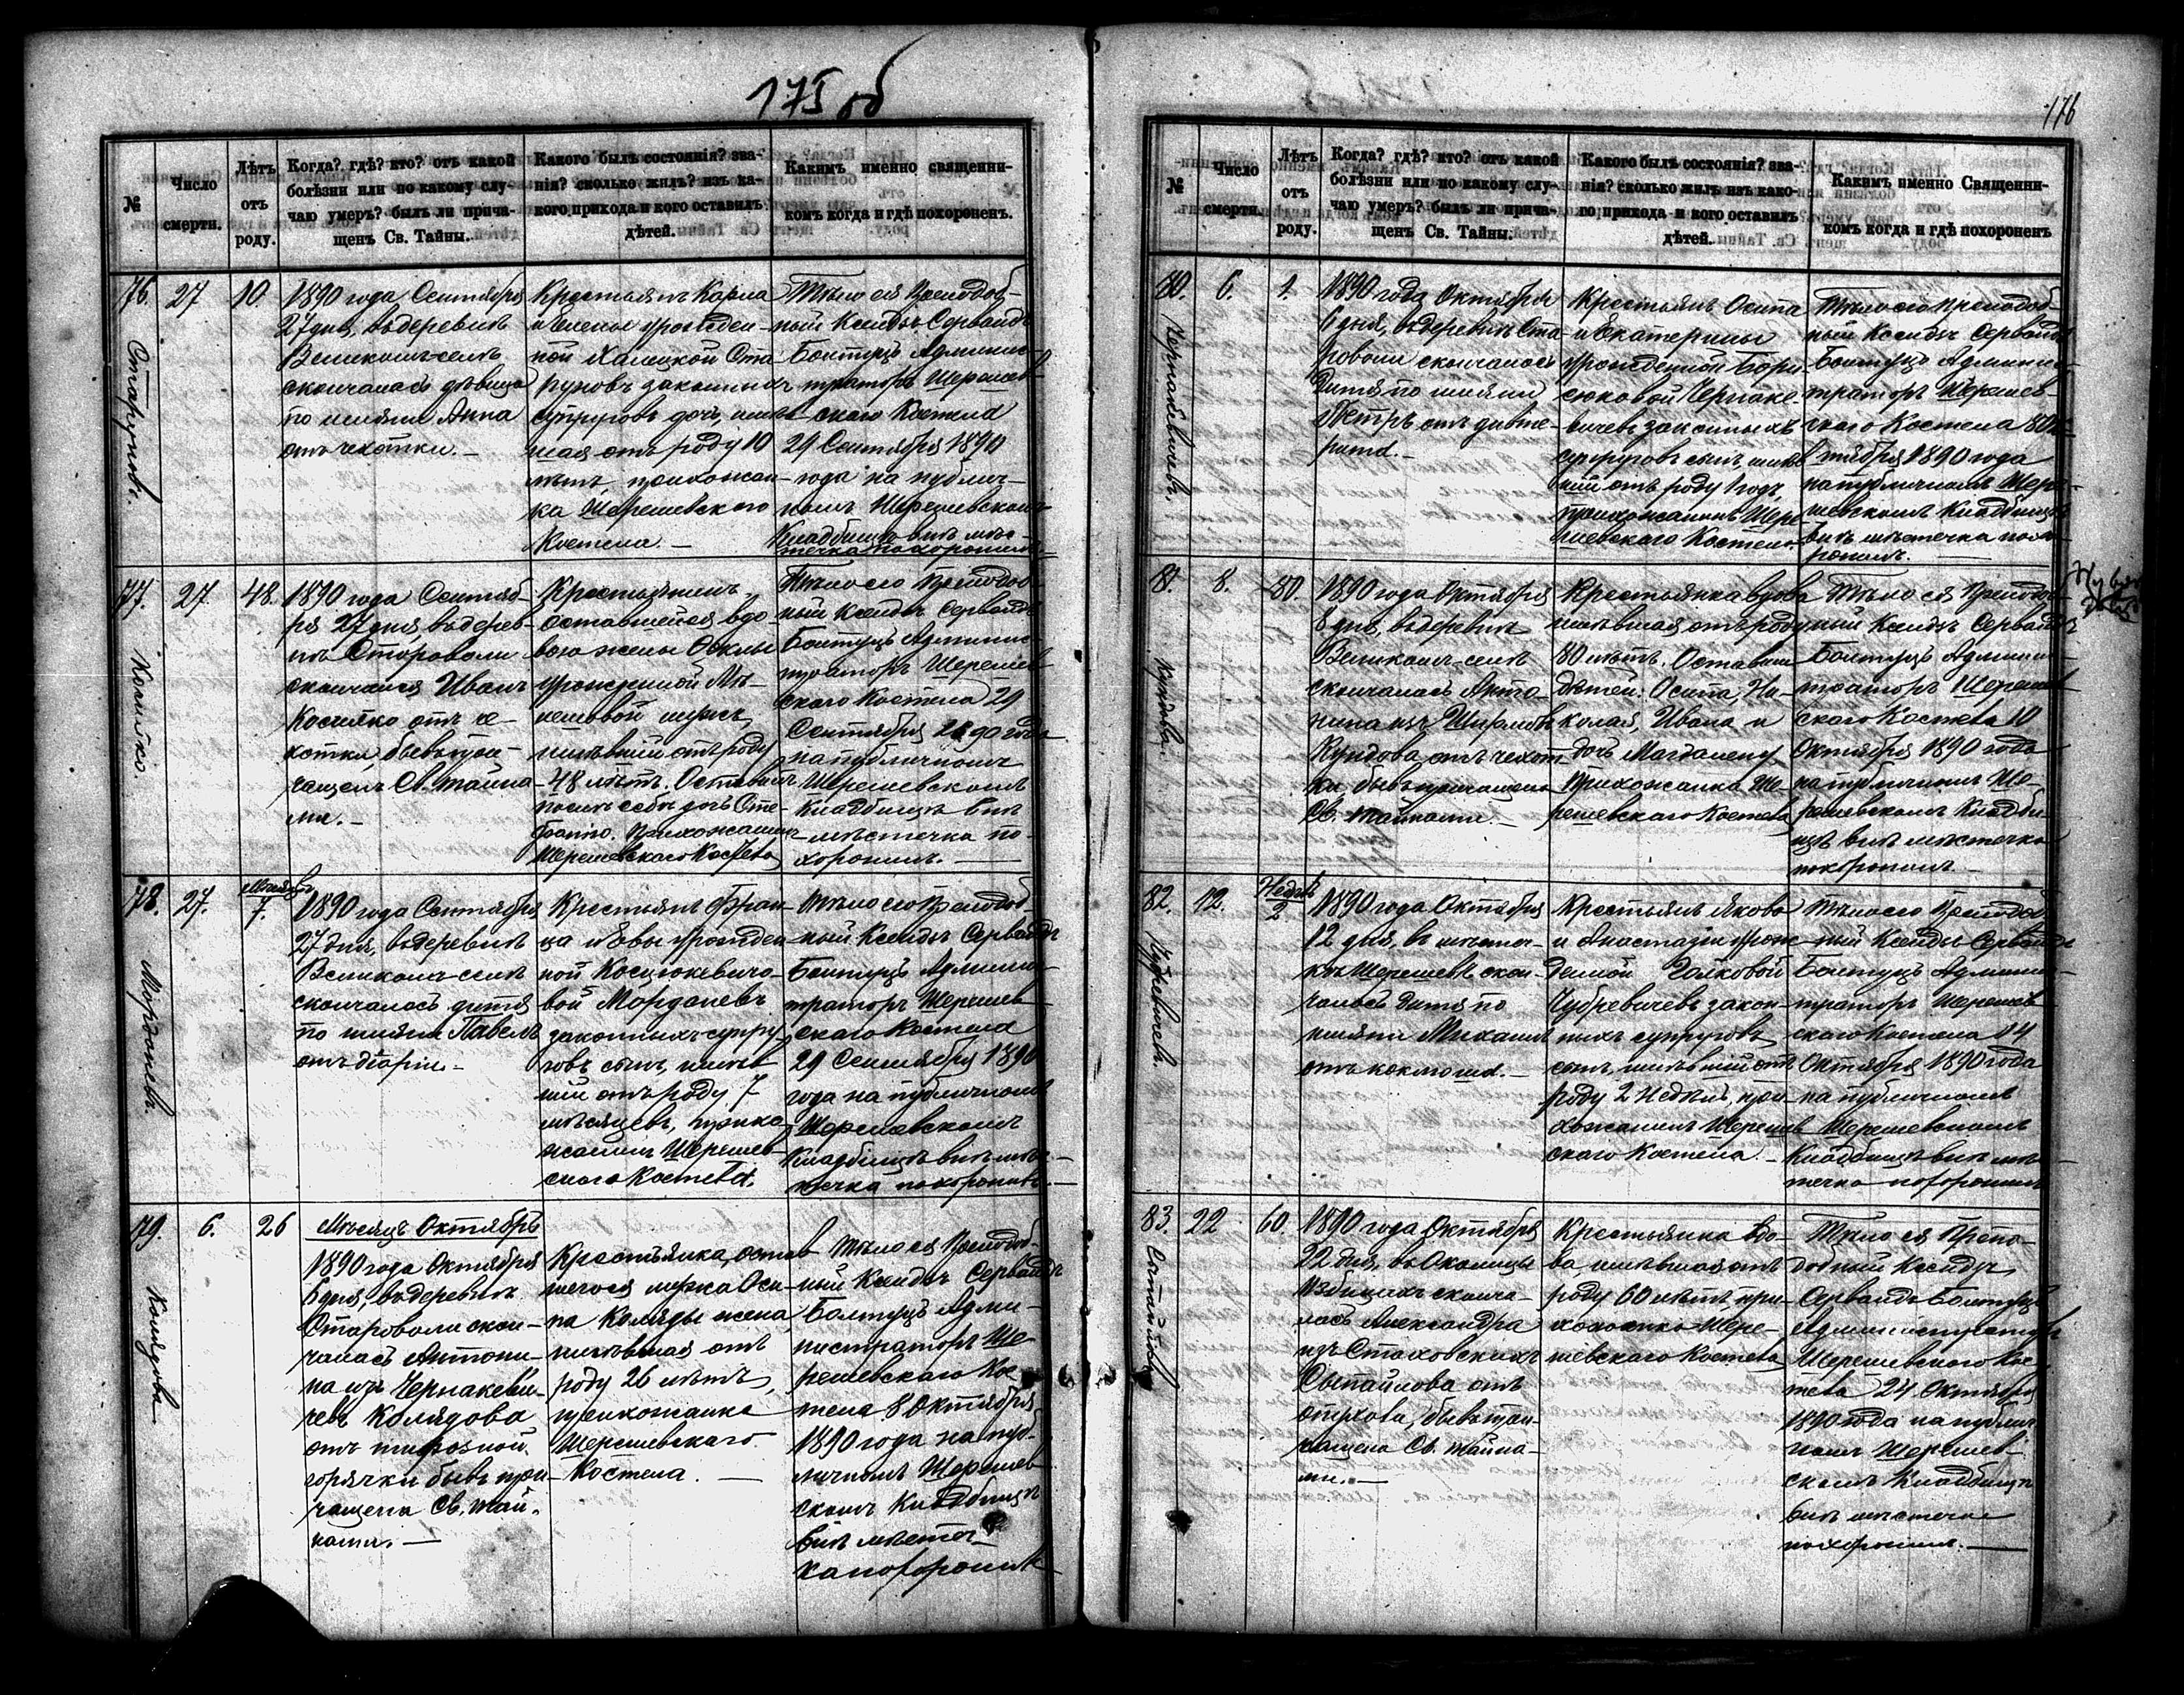 175 об
№
Число
смерти.
Лѣтъ
отъ
роду.
Когда? гдѣ? кто? отъ какой
болѣзни или по какому слу-
чаю умеръ? былъ ли прича-
щенъ Св. Тайны.
Какого былъ состоянія? зва-
нія? сколько жилъ? изъ ка-
кого прихода и кого оставилъ
дѣтей.
Какимъ именно священни-
комъ когда и гдѣ похороненъ.
76.
27
10.
1890 года Сентября
27 дня, въ деревнѣ
Великомъ-селѣ
скончалась дѣвица
по имяни Анна
отъ чехотки. —
Крестьянъ Карла
и Елены урожден-
ной
законныхъ
супруговъ дочь, имѣв-
шая отъ роду 10
лѣтъ, прихожан-
ка Шерешевского
Костела. —
Тѣло ея Преподоб-
ный Ксендзъ Сервандъ
Болтуць Админис-
траторъ Шерешев-
ского Костела
29 Сентября 1890
года на публич-
номъ Шерешевскомъ
Кладбищѣ внѣ мѣс-
течка похоронилъ.
77.
27.
48.
1890 года Сентяб-
ря 27 дня, въ дерев-
нѣ Староволи
скончался Иванъ
отъ че-
хотки, бывъ при-
чащенъ Св. Тайна-
ми. —
Крестьянинъ,
оставшейся вдо-
вою жены
урожденной
мужъ,
имѣвшій отъ роду
48 лѣтъ. Оставилъ
послѣ себя дочь Сте-
фанію. Прихожанинъ
Шерешевскаго Костела
Тѣло его Преподоб-
ный Ксендзъ Сервандъ
Болтуць Админис-
траторъ Шерешев-
ского Костела 29
Сентября 1890 года
на публичномъ
Шерешевскомъ
Кладбищѣ внѣ
мѣстечка по-
хоронилъ. —
78.
27.
Мѣсяцъ
7.
Мордачевъ.
1890 года Сентября
27 дня, въ деревнѣ
Великомъ-селѣ
скончалось дитя
по имяни Павелъ
отъ діаріи. —
Крестьянъ Фран-
ца и Евы урожден-
ной Косцюкевичо-
вой Мордачевъ
законныхъ супру-
говъ сынъ, имѣв-
шій отъ роду 7
мѣсяцевъ, прихо-
жанинъ Шерешев-
ского Костела.
Тѣло его Преподоб-
ный Ксендзъ Сервандъ
Болтуць Админис-
траторъ Шерешев-
ского Костела
29 Сентября 1890
года на публичномъ
Шерешевскомъ
Кладбищѣ внѣ мѣс-
течка похоронилъ.
79.
6.
26
Колядова.
Мѣсяцъ Октябрь
1890 года Октября
6 дня, въ деревнѣ
Староволи скон-
чалась Антони-
на изъ Чернакеви-
чевъ Колядова
отъ тифозной
горячки бывъ при-
чащена Св. Тай-
нами. —
Крестьянка, остав-
шегося мужа Оси-
па Коляды жена,
имѣвшая отъ
роду 26 лѣтъ,
прихожанка
Шерешевскаго
Костела. —
Тѣло ея Преподоб-
ный Ксендзъ Сервандъ
Болтуць Адми-
нистраторъ Ше-
решевскаго Кос-
тела 8 Октября
1890 года на пуб-
личномъ Шерешев-
скомъ Кладбищѣ
внѣ мѣстеч-
ка похоронилъ
176
№
Число
смерти.
Лѣтъ
отъ
роду.
Когда? гдѣ? кто? отъ какой
болѣзни или по какому слу-
чаю умеръ? былъ ли прича-
щенъ Св. Тайны.
Какого былъ состоянія? зва-
нія? сколько жилъ изъ како-
го прихода и кого оставилъ
дѣтей.
Какимъ именно Священни-
комъ когда и гдѣ похороненъ
80.
6.
1.
Чернакевичевъ.
1890 года Октября
6 дня, въ деревнѣ Ста-
роволи скончалось
дитя по имяни
Піотръ отъ дифте-
рита. —
Крестьянъ Осипа
и Екатерины
урожденной Бори-
сюковой Чернаке-
вичевъ законныхъ
супруговъ сынъ, имѣв-
шій отъ роду 1 годъ,
прихожанинъ Шере-
шевскаго Костела.
Тѣло его Преподоб-
ный Ксендзъ Сервандъ
Болтуць Админис-
траторъ Шерешев-
ского Костела 8 Ок-
тября 1890 года
на публичномъ Шере-
шевскомъ Кладбищѣ
внѣ мѣстечка похо-
ронилъ. —
81.
8.
80.
Кундова.
1890 года Октября
8 дня, въ деревнѣ
Великомъ-селѣ
скончалась Анто-
нина изъ
Кундова, отъ чехот-
ки, бывъ причащена
Св. Тайнами. —
Крестьянка вдова
имѣвшая отъ роду
80 лѣтъ. Оставила
дѣтей: Осипа, Ни-
колая, Ивана и
дочь Магдалену
Прихожанка Ше-
решевскаго Костела
Тѣло ея Преподоб-
ный Ксендзъ Сервандъ
Болтуць Админис-
траторъ Шерешев-
ского Костела 10
Октября 1890 года
на публичномъ Ше-
решевскомъ Кладби-
щѣ внѣ мѣстечка
похоронилъ. —
82.
12.
Недѣль
2
Чубревичевъ.
1890 года Октября
12 дня, въ мѣстеч-
кѣ Шерешевѣ скон-
чалось дитя по
имяни Михаилъ
отъ коклюша. —
Крестьянъ Якова
и Анастазіи урож-
денной Гайковой
Чубревичевъ закон-
ныхъ супруговъ
сынъ, имѣвшій отъ
роду 2 Недѣли, при-
хожанинъ Шерешев-
скаго Костела. —
Тѣло его Преподоб-
ный Ксендзъ Сервандъ
Болтуць Админис-
траторъ Шерешев-
скаго Костела 14
Октября 1890 года
на публичномъ
Шерешевскомъ
Кладбищѣ внѣ мѣс-
течка похоронилъ
83.
22
60.
1890 года Октября
22 дня, въ Околицы
Избицахъ сконча-
лась Александра
изъ Стаховскихъ
Сыпайлова отъ
бывъ при-
чащена Св. Тайна-
ми. —
Крестьянка вдо-
ва, имѣвшая отъ
роду 60 лѣтъ, при-
хожанка Шере-
шевскаго Костела
Тѣло ея Препо-
добный Ксендзъ
Сервандъ Болтуць
Администраторъ
Шерешевского Кос-
тела 24 Октября
1890 года на публич-
номъ Шерешев-
скомъ Кладбищѣ
внѣ мѣстечка
похоронилъ. —